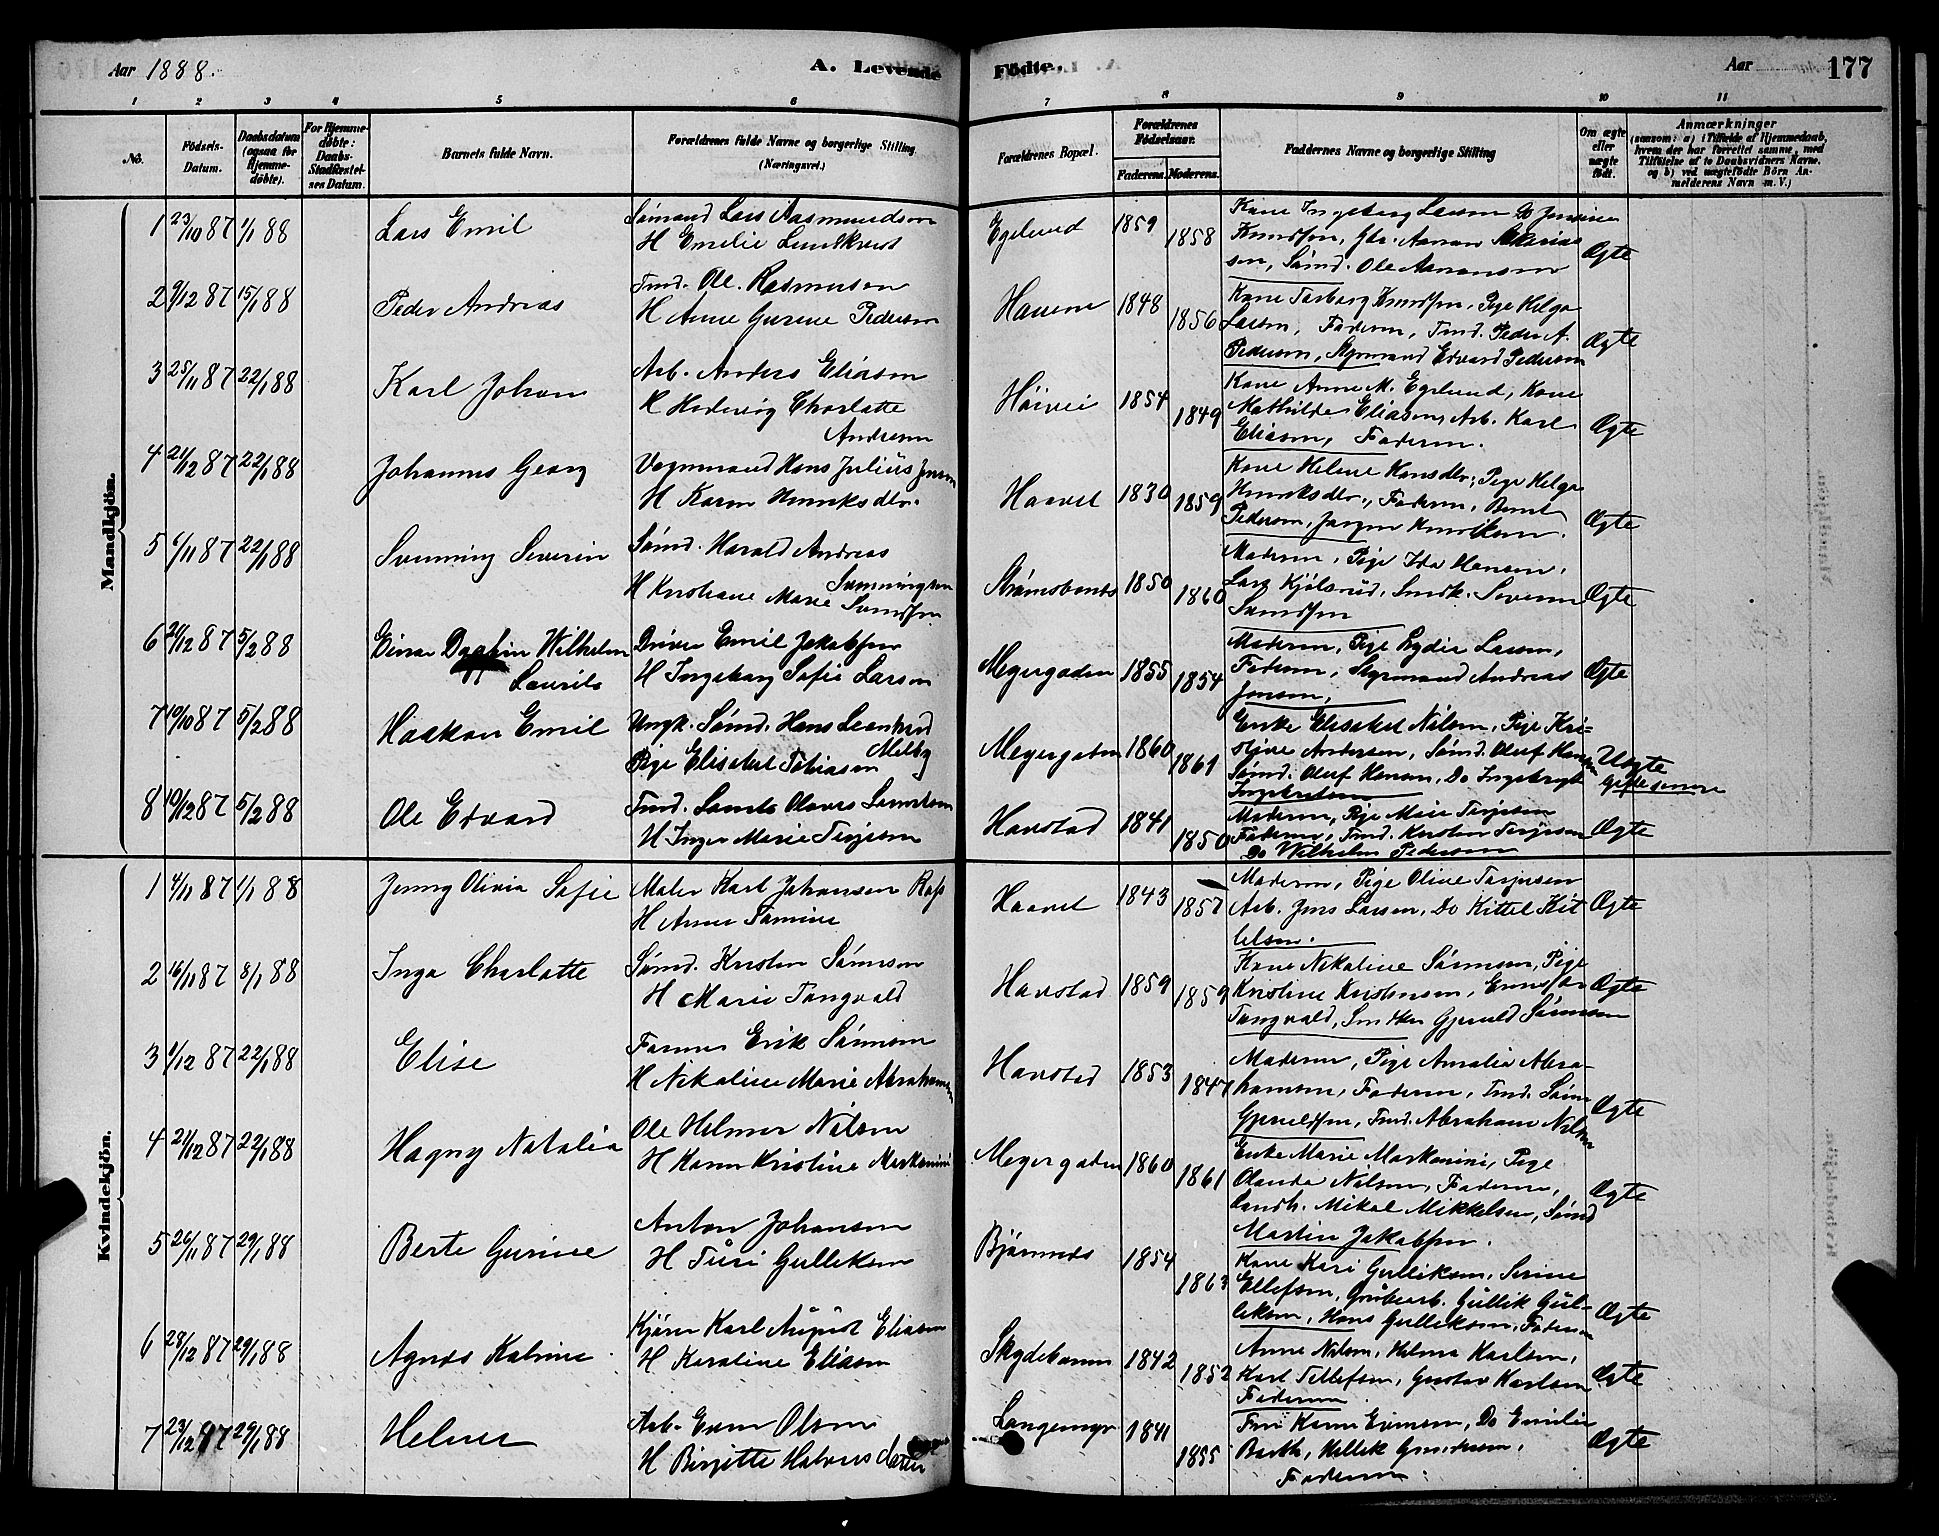 Aar 1888.
A. Levende Födte.
Aar
177
1 2 3 4 5 6 7 8 9 10 11
No.
Födsels-Datum.
Daabsdatum (ogsaa for Hjemme-döbte).
For Hjemme-döbte: Daabs-Stadfæstel-ses Datum.
Barnets fulde Navn.
Forældrenes fulde Navne og borgerlige Stilling (Næringsvei.)
Forældrenes Bopæl.
Forældrenes Födselsaar.
Faderens. Moderens.
Faddernes Navne og borgerlige Stilling
Om ægte eller uægte födt.
Anmærkninger
(saasom: a) i Tilfælde af Hjemmedaab, hvem der har forrettet samme, med Tilföielse af to Daabsvidners Navne. og b) ved uægtefödte Börn Anmelderens Navn m. V.)
Mandkjön.
1 23/10 87 1/1 88 Lars Emil
Sömand Lars Aasmundsen
H Emelie Lundkvist
Egelund 1859 1858
Kone Ingeborg Larsen
Knudsen,
Sömd. Ole Aanonsen
Ægte
2 9/12 87 15/1 88 Peder Andreas
Tmd. Ole Rasmussen
H Anne Gurine Pedersen
Havene 1848 1856
Kone Torborg Knudsen, Pige Helga
Larsen, Faderen, Tmd. Peder A.
Pedersen, Styrmand Edvard Pedersen
Ægte
3 25/11 87 22/1 88 Karl Johan
Arb. Anders Eliasen
H Hedevig Charlotte
Andresen
Höivei 1854 1849
Kone Anne M. Egelund, Kone
Mathilde Eliasen, Arb. Karl
Eliasen, Faderen.
Ægte
4 21/12 87 22/1 88 Johannes Georg
Vognmand Hans Julius Jensen
H Karen Henriksdtr.
Haavet 1830 1859
Kone Helene Hansdtr, Pige Helga
Henriksdtr, Faderen, Bernt
Pedersen, Jörgen
Ægte
5 6/11 87 22/1 88 Svenning Severin
Sömd. Harald Andreas
Svenningsen
H Kristiane Marie
Strömsbunes 1850 1860
Moderen, Pige Ida Hansen,
Lars Kjölsrud, Smdk. Severin
Ægte
6 21/12 87 5/2 88 Einar Dagfin Wilhelm
Laurits
Driver Emil Jakobsen
H Ingeborg Sofie Larsen
Meyergaden 1855 1854
Moderen, Pige Lydia Larsen,
Faderen, Styrmand Andreas
Jensen,
Ægte
7 19/10 87 5/2 88 Haakon Emil
Ungk. Sömd. Hans Leonhard
Melby
Pige Elisabet Tobiasen
Meyergaden 1860 1861
Enke Elisabet Nilsen, Pige Kri-
stine Andersen, Sömd. Oluf Hansen
Sömd. Oluf Hansen, Do Ingebregt
Ingebretsen
Uægte
gift senere
8 19/12 87 5/2 88 Ole Edvard
Tmd. Laurits Olaves
H Inger Marie Terjesen
Havstad 1841 1850
Moderen, Pige Marie Terjesen
Faderen, Tmd. Kristen Terjesen
Do Wilhelm Pedersen
Ægte
Kvindekjön.
1 4/11 87 1/1 88 Jenny Olivia Sofie
Maler Karl Johansen
H Anne Tomine
Haavet 1843 1857
Moderen, Pige Oline Terjesen
Arb. Jens Larsen, Do Kittel Kit-
telsen.
Ægte
2 16/11 87 8/1 88 Inga Charlotte
Sömd. Kristen Sörensen
H Marie Tangvald
Havstad 1859 1859
Kone Nikoline Sörensen, Pige
Kristine Kristensen,
Tangvald, Gjeruld Sörensen
Ægte
3 1/12 87 22/1 88 Elise
Farmer Erik Sörensen
H Nikoline Marie Abrahamsen
Havstad 1853 1847
Moderen, Pige Amalia Abra-
hamsen, Faderen, Tmd. Sören
Gjeruldsen, Tmd. Abraham Nilsen
Ægte
4 21/12 87 22/1 88 Hagny Natalia
Ole Helmer Nilsen
H Karen Kristine Markonini
Meyergaden 1860 1861
Enke Marie Markonini, Pige
Olanda Nilsen, Faderen,
Mikal Mikkelsen, Sömd
Martin Jakobsen.
Ægte
5 26/11 87 29/1 88 Berte Gurine
Anton Johansen
H Turi Gulleksen
Bjönnes 1854 1863
Kone Kari Gulliksen, Serine
Ellefsen, Grubearb. Gullik Gul-
leksen, Hans Gulleksen, Faderen
Ægte
6 28/12 87 29/1 88 Agnes Katrine
Kjörer Karl August Eliasen
H Karoline Eliasen
Skydebanen 1842 1852
Anne Nilsen, Helma Karlsen,
Karl Tellefsen, Gustav Karlsen
Faderen
Ægte
7 23/12 87 29/1 88 Helene
Arb. Even Olsen
H Birgitte Halvorsdatter
Langemyr 1841 1855
Fru Karen Evensen, Do Emilie
Barth, Kellik Gundersen,
Faderen.
Ægte